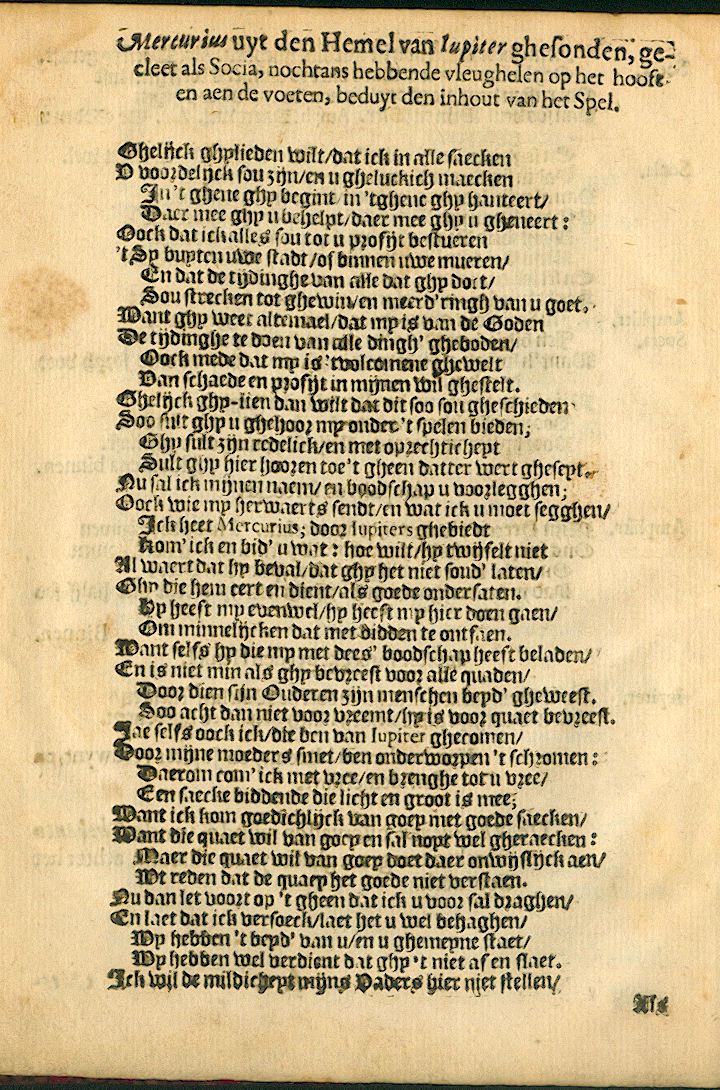 Mercurius uyt den Hemel van Iupiter ghesonden, ge-
cleet als Socia, nochtans hebbende vleughelen op het hooft
en aen de voeten, beduyt den inhout van het Spel.
Ghelijck ghylieden wilt/dat ick in alle saecken
V voordelijck sou zijn/en u gheluckich maecken
In 't ghene ghy begint/in 'tghene ghy hanteert/
Daer mee ghy u behelpt/daer mee ghy u gheneert:
Oock dat ick alles sou tot u profijt bestueren
't Sy buyten uwe stadt/of binnen uwe mueren/
En dat de tijdinghe van alle dat ghy doet/
Sou strecken tot ghewin/en meerd'ringh van u goet,
Want ghy weet altemael/dat my is van de Goden
De tijdinghe te doen van alle dingh' gheboden/
Oock mede dat my is 'tvolcomene ghewelt
Van schaede en profijt in mijnen wil ghestelt.
Ghelijck ghy-lien dan wilt dat dit soo sou gheschieden
Soo sult ghy u ghehoor my onder't spelen bieden;
Ghy sult zijn redelick/en met oprechticheyt
Sult ghy hier hooren toe't gheen datter wert gheseyt.
Nu sal ick mijnen naem/en boodschap u voorlegghen;
Oock wie my herwaerts sendt/en wat ick u moet segghen/
Ick heet Mercurius; door Iupiters ghebiedt
Kom' ick en bid' u wat: hoe wilt/hy twijfelt niet
Al waert dat hy beval/dat ghy het niet soud' laten/
Ghy die hem eert en dient/als goede ondersaten.
Hy heeft my evenwel/hy heeft my hier doen gaen/
Om minnelijcken dat met bidden te ontfaen.
Want selfs hy die my met dees' boodschap heeft beladen/
En is niet min als ghy bevreest voor alle quaden/
Door dien sijn Ouderen zijn menschen beyd' gheweest.
Soo acht dan niet voor vreemt/hy is voor quaet bevreest.
Jae selfs oock ick/die ben van Iupiter ghecomen/
Door mijne moeders smet/ben onderworpen 't schromen:
Daerom com' ick met vree/en brenghe tot u vree/
Een saecke biddende die licht en groot is mee;
Want ick kom goedichlijck van goey met goede saecken/
Want die quaet wil van goey en sal noyt wel gheraecken:
Maer die quaet wil van goey doet daer onwijslijck aen/
Wt reden dat de quaey het goede niet verstaen.
Nu dan let voort op 't gheen dat ick u voor sal draghen/
En laet dat ick versoeck/laet het u wel behaghen/
Wy hebben 't beyd' van u/en u ghemeyne staet/
Wy hebben wel verdient dat ghy 't niet af en slaet.
Ick wil de mildicheyt mijns Vaders hier niet stellen/
Als